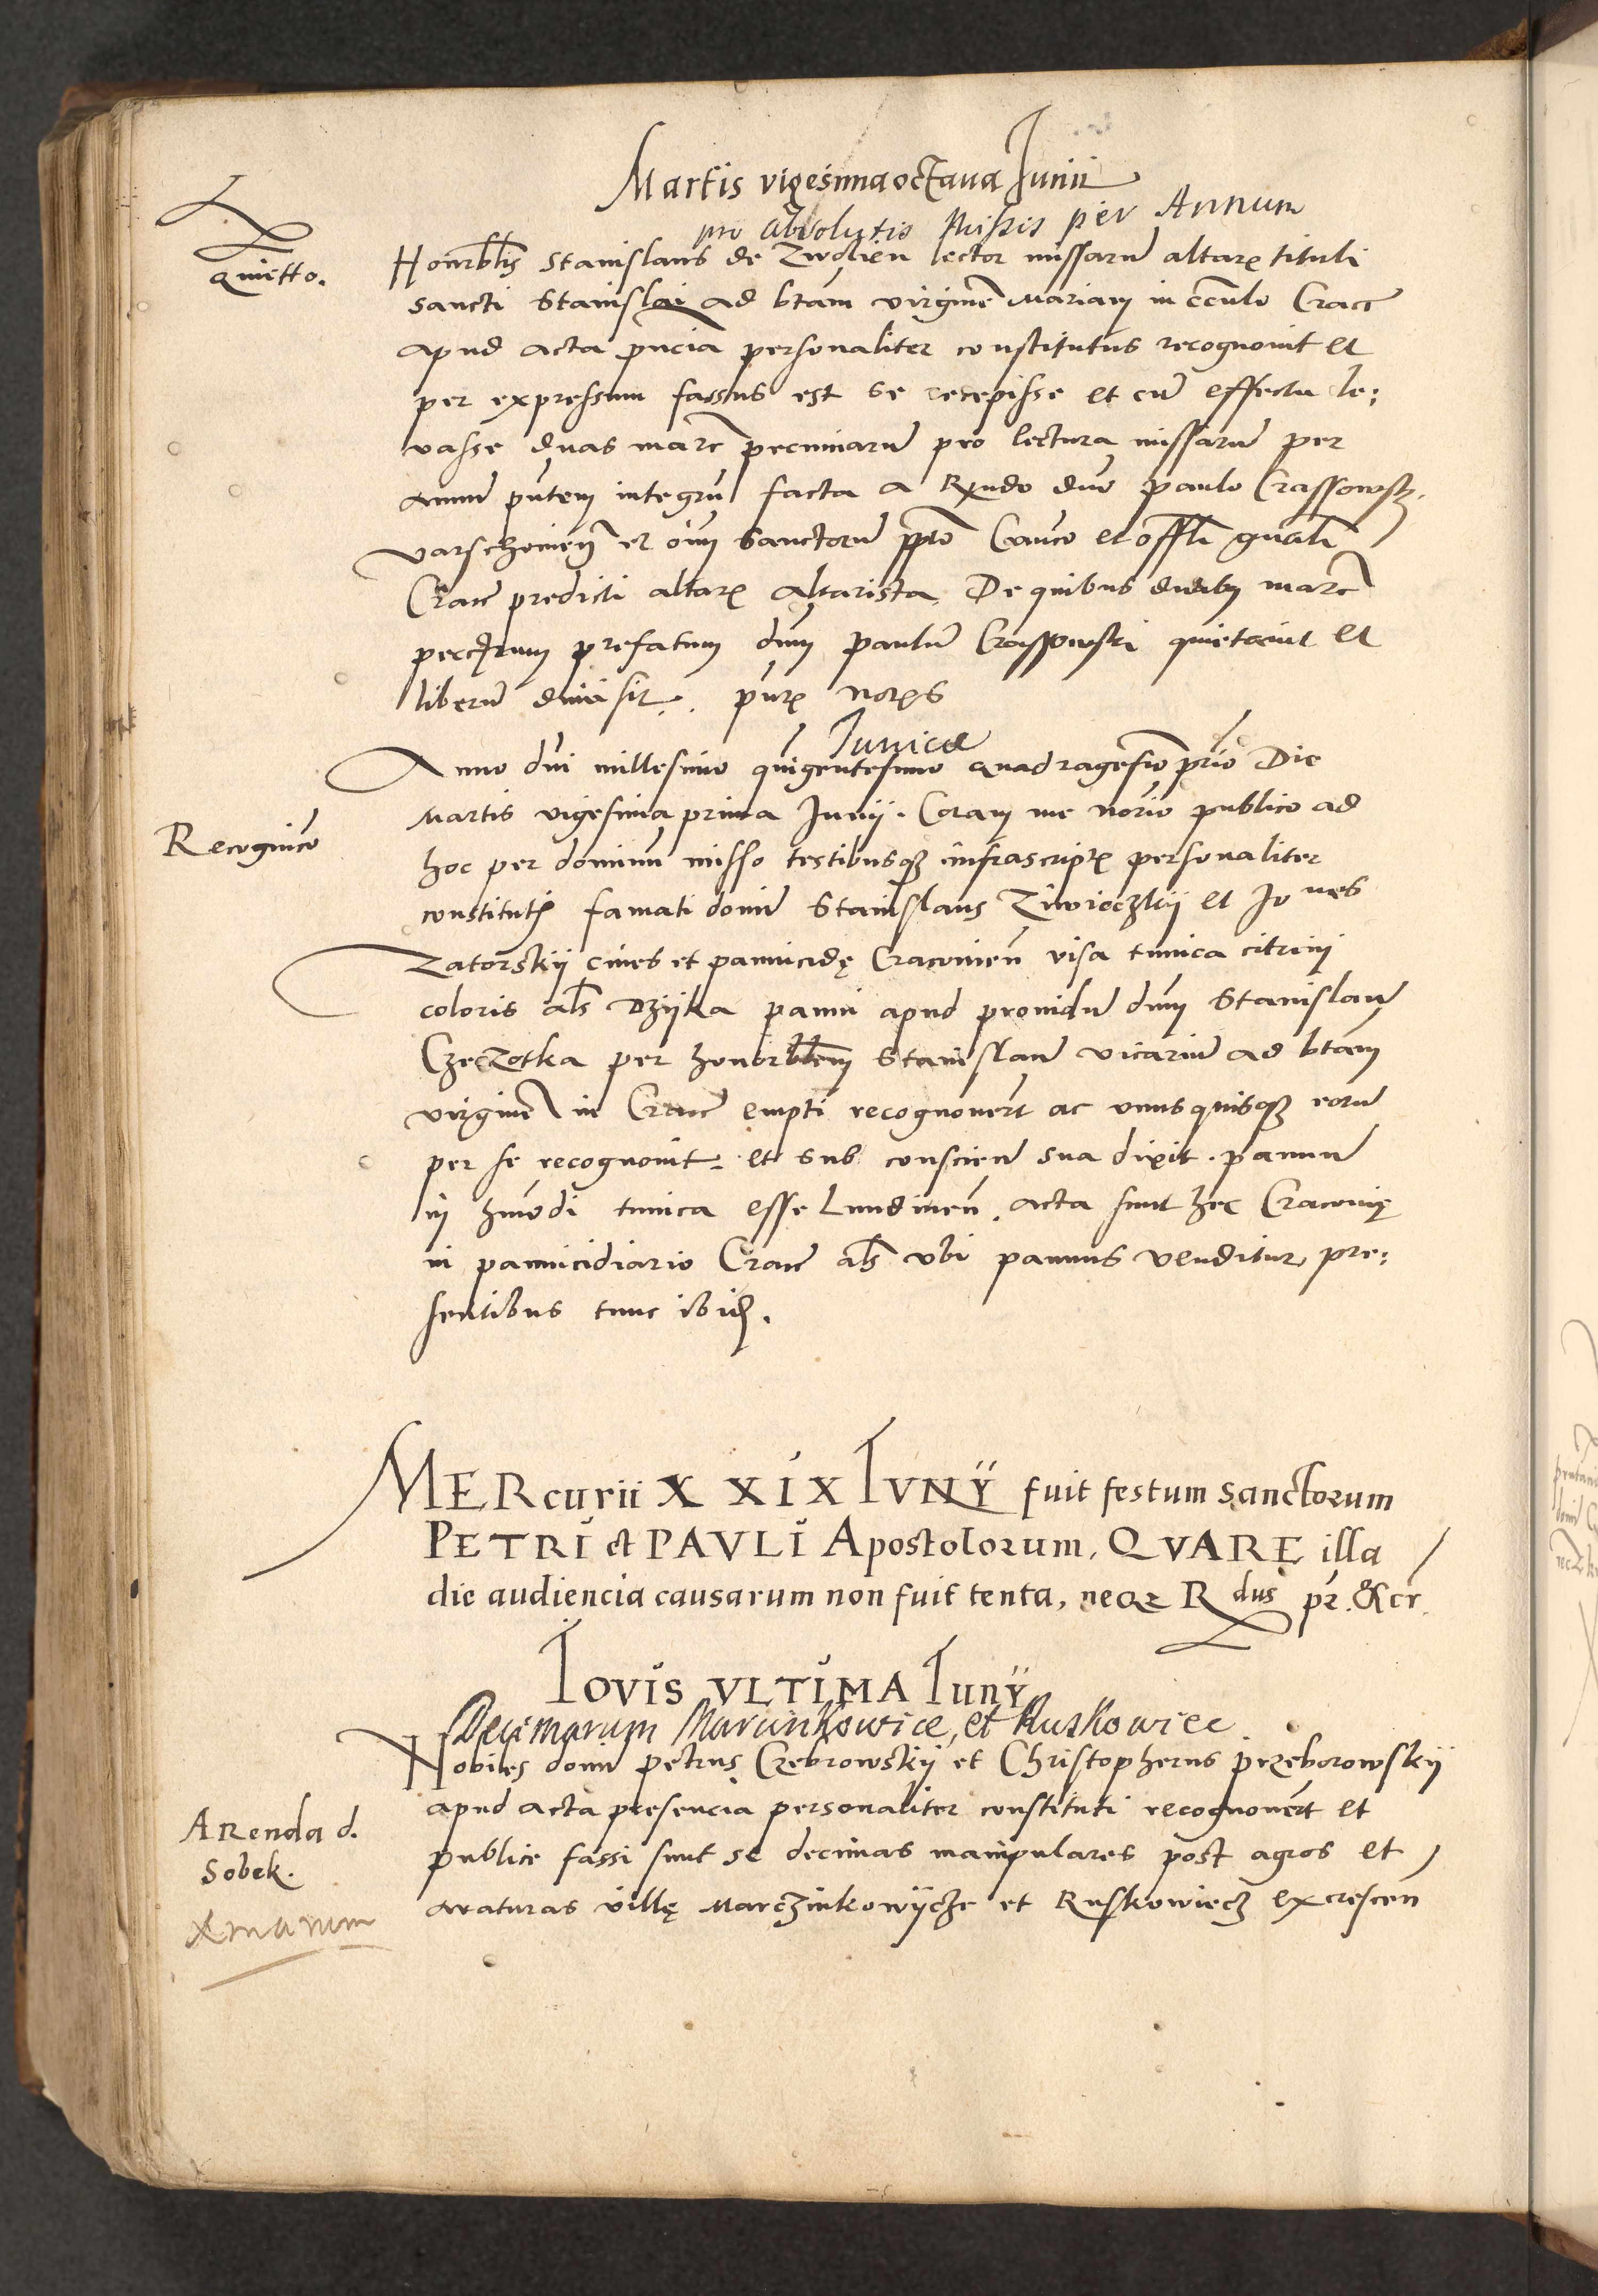 Martis vigesima octaua Junii
pro absolutis Missis per Annum
quietto.
Honorblis Stanislaus de Zwolien lector missarũ altarꝭ tituli
sancti Stanislai ad btam virginẽ Mariam in Cracc
apud acta pñcia personaliter constitutus recognouit et
per expressum fassus est se recepisse et cũ effectu le:
vasse duas marc pecuniarũ pro lectura missarũ per
annũ pñtem integrũ facta a Rxndo dño paulo Crassowsk
varschouieñ et oim Sanctorũ ppto Canco et offli gñali
Cracc predicti altarꝭ altarista. De quibus duabꝫ marc
prefatum dñm Paulũ Crassowski quietauit et
liberũ dimisit. pñtꝭ norꝭs
Tunica
Recognico
Anno dñi millesimo quigentesimo quadragesio prio Die
Martis vigesima prima Junij. Coram me norio publico ad
hoc per dominũ misso testibusqꝫ infrascriptꝭ personaliter
constitutꝭ famati domi Stanislaus Ziwieczkij et Jo nes
Zatorskij ciues et pannicidę Cracouieñ visa tunica citrini
coloris als Dzijka panni apud prouidũ dñm Stanislaũ
Czeczotka per honorblem Stanislaũ vicariũ ad btam
virginẽ in Cracc empti recognouert ac vnusquisqꝫ eorũ
per se recognouit et sub conscieñ sua dixit. pannũ
in hmõdi tunica esse Lundineñ. acta sunt hec Cracouię
in pannicidiario Cracc als vbi pannus venditur, pre:
sentibus tunc ibidꝫ.
MERcurii XXIX IVNŸ fuit festum sanctorum
PETRI et PAVLI Apostolorum, QVARE illa
die audiencia causarum non fuit tenta, neqꝫ R dus pr. &cr.
IOVIS VLTIMA Iunÿ
Decimarum Marcinkowice, et Ruskowiec
Nobiles domi Petrus Czebrowskij et Christopherus Przeborowskij
Arenda d.
Sobek.
Xmarum
apud acta presencia personaliter constituti recognouert et
publice fassi sunt se decimas manipulares post agros et
araturas villę Marczinkowijcze et Ruskowiecz excresceñ